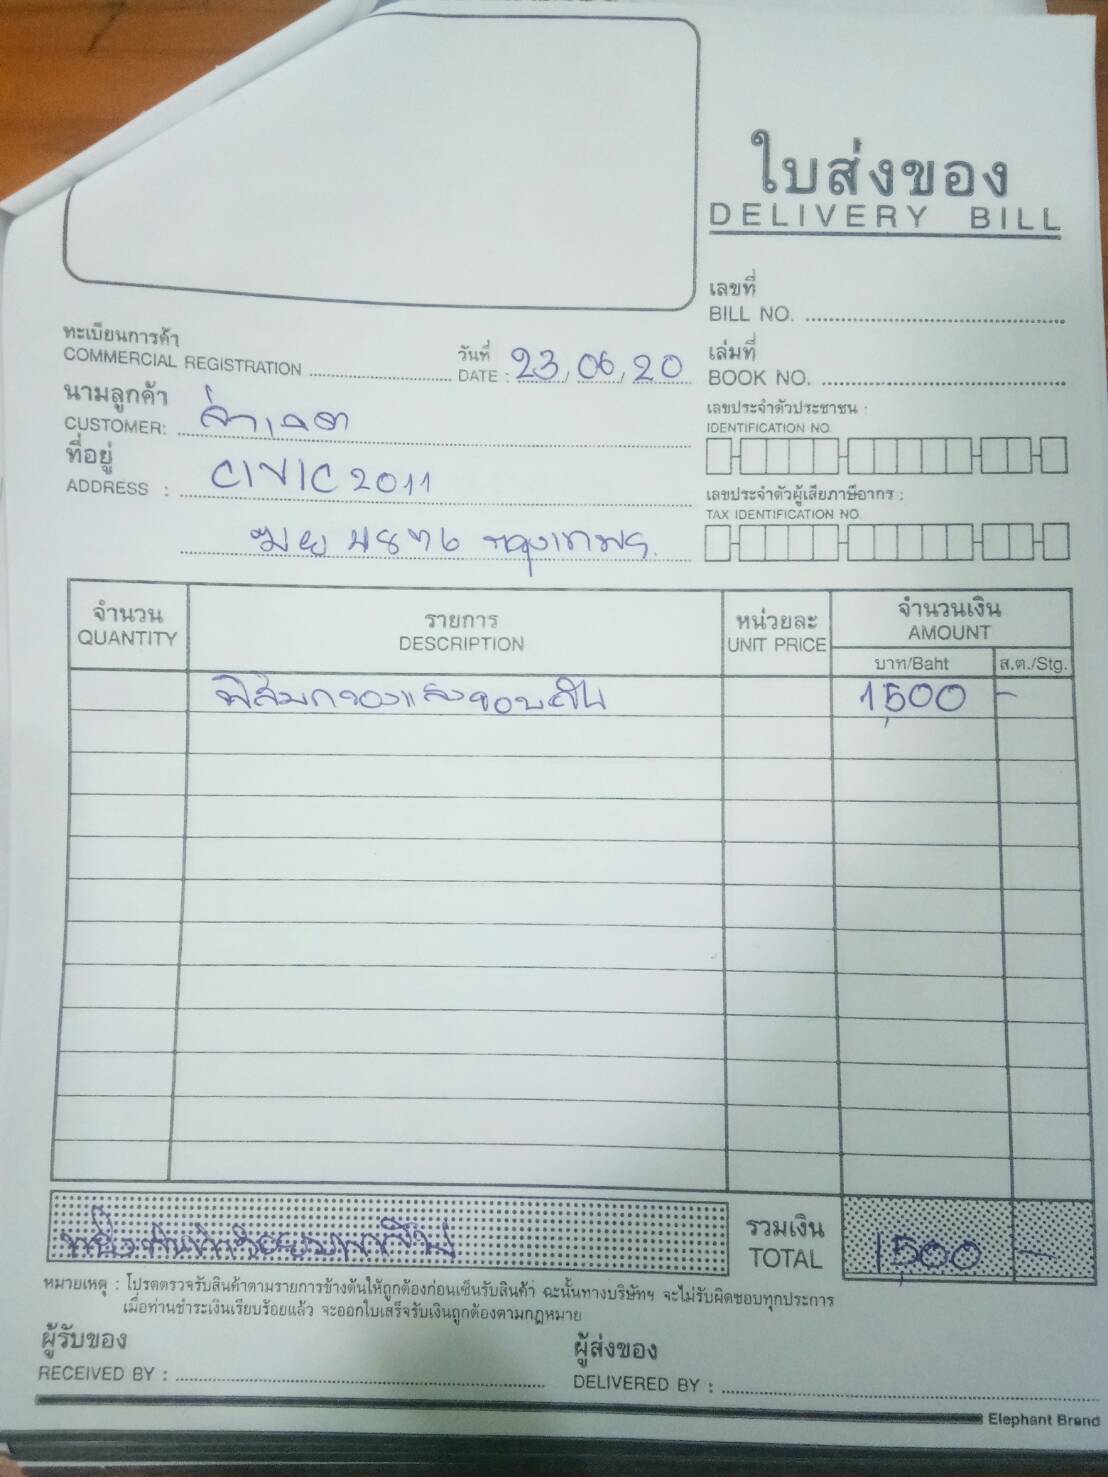 ใบส่งของ
DELIVERY BILL
เลขที่
BILL NO.
ทะเบียนการค้า
COMMERCIAL REGISTRATION
วันที่
DATE : 23, 06, 20
เล่มที่
BOOK NO.
นามลูกค้า
CUSTOMER:
เลขประจำตัวประชาชน :
IDENTIFICATION NO.
ที่อยู่
ADDRESS : CIVIC 2011
เลขประจำตัวผู้เสียภาษีอากร :
TAX IDENTIFICATION NO.
กรุงเทพฯ.
จำนวน รายการ หน่วยละ จำนวนเงิน
QUANTITY DESCRIPTION UNIT PRICE AMOUNT
บาท/Baht ส.ต./Stg.
ฟิล์มกรองแสงรอบคัน 1,500 -
หนึ่งพันห้าร้อยบาทถ้วน
รวมเงิน
TOTAL 1,500 -
หมายเหตุ : โปรดตรวจรับสินค้าตามรายการข้างต้นให้ถูกต้องก่อนเซ็นรับสินค้า ฉะนั้นทางบริษัทฯ จะไม่รับผิดชอบทุกประการ
เมื่อท่านชำระเงินเรียบร้อยแล้ว จะออกใบเสร็จรับเงินถูกต้องตามกฎหมาย
ผู้รับของ
RECEIVED BY :
ผู้ส่งของ
DELIVERED BY :
Elephant Brand